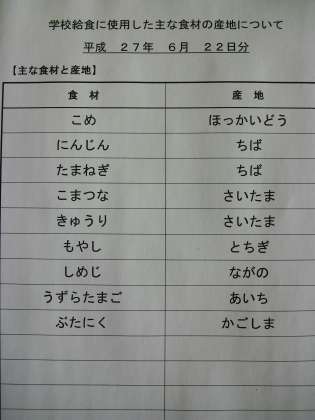 学校給食に使用した主な食材の産地について
平成　２７年　６月　２２日分
【主な食材と産地】
食　材　産　地
こめ　ほっかいどう
にんじん　ちば
たまねぎ　ちば
こまつな　さいたま
きゅうり　さいたま
もやし　とちぎ
しめじ　ながの
うずらたまご　あいち
ぶたにく　かごしま